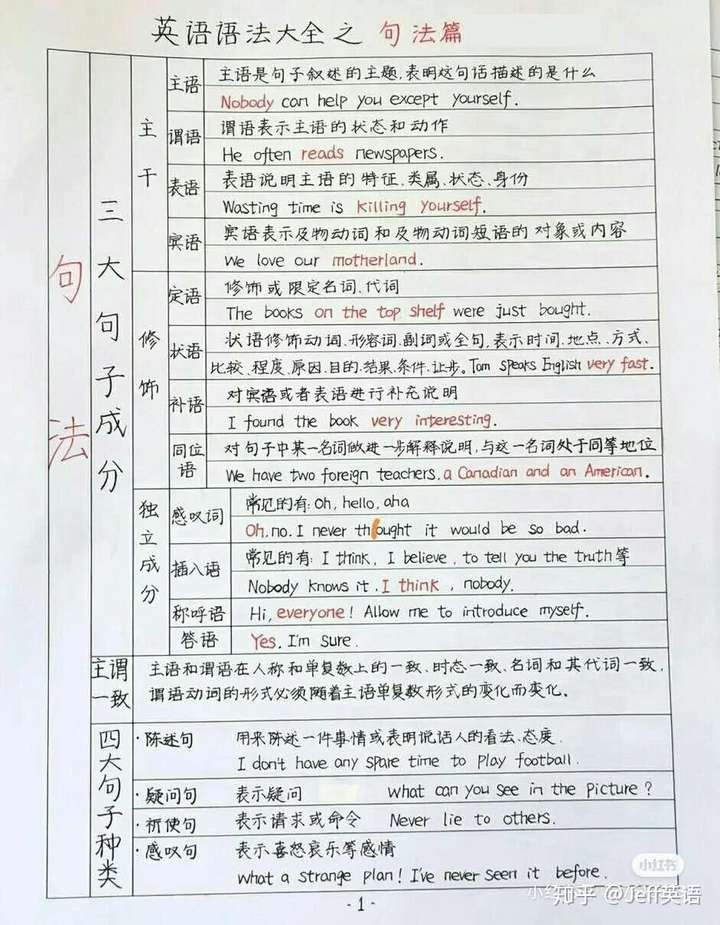 英语语法大全之 句法篇
句法
三大句子成分
主干
主语
主语是句子叙述的主题,表明这句话描述的是什么
Nobody can help you except yourself.
谓语
谓语表示主语的状态和动作
He often reads newspapers.
表语
表语说明主语的特征、类属、状态、身份
Wasting time is killing yourself.
宾语
宾语表示及物动词和及物动词短语的对象或内容
We love our motherland.
修饰
定语
修饰或限定名词、代词
The books on the top shelf were just bought.
状语
状语修饰动词、形容词、副词或全句,表示时间、地点、方式、
比较、程度、原因、目的、结果、条件、让步。Tom speaks English very fast.
补语
对宾语或者表语进行补充说明
I found the book very interesting.
同位语
对句子中某一名词做进一步解释说明,与这一名词处于同等地位
We have two foreign teachers, a Canadian and an American.
独立成分
感叹词
常见的有:Oh, hello, aha
Oh, no. I never thought it would be so bad.
插入语
常见的有:I think, I believe, to tell you the truth等
Nobody knows it, I think, nobody.
称呼语
Hi, everyone! Allow me to introduce myself.
答语
Yes, I'm sure.
主谓一致
主语和谓语在人称和单复数上的一致、时态一致、名词和其代词一致,
谓语动词的形式必须随着主语单复数形式的变化而变化。
四大句子种类
·陈述句 用来陈述一件事情或表明说话人的看法、态度
I don't have any spare time to play football.
·疑问句 表示疑问 What can you see in the picture?
·祈使句 表示请求或命令 Never lie to others.
·感叹句 表示喜怒哀乐等感情
What a strange plan! I've never seen it before.
小红书
知乎 @Jeff英语
-1-